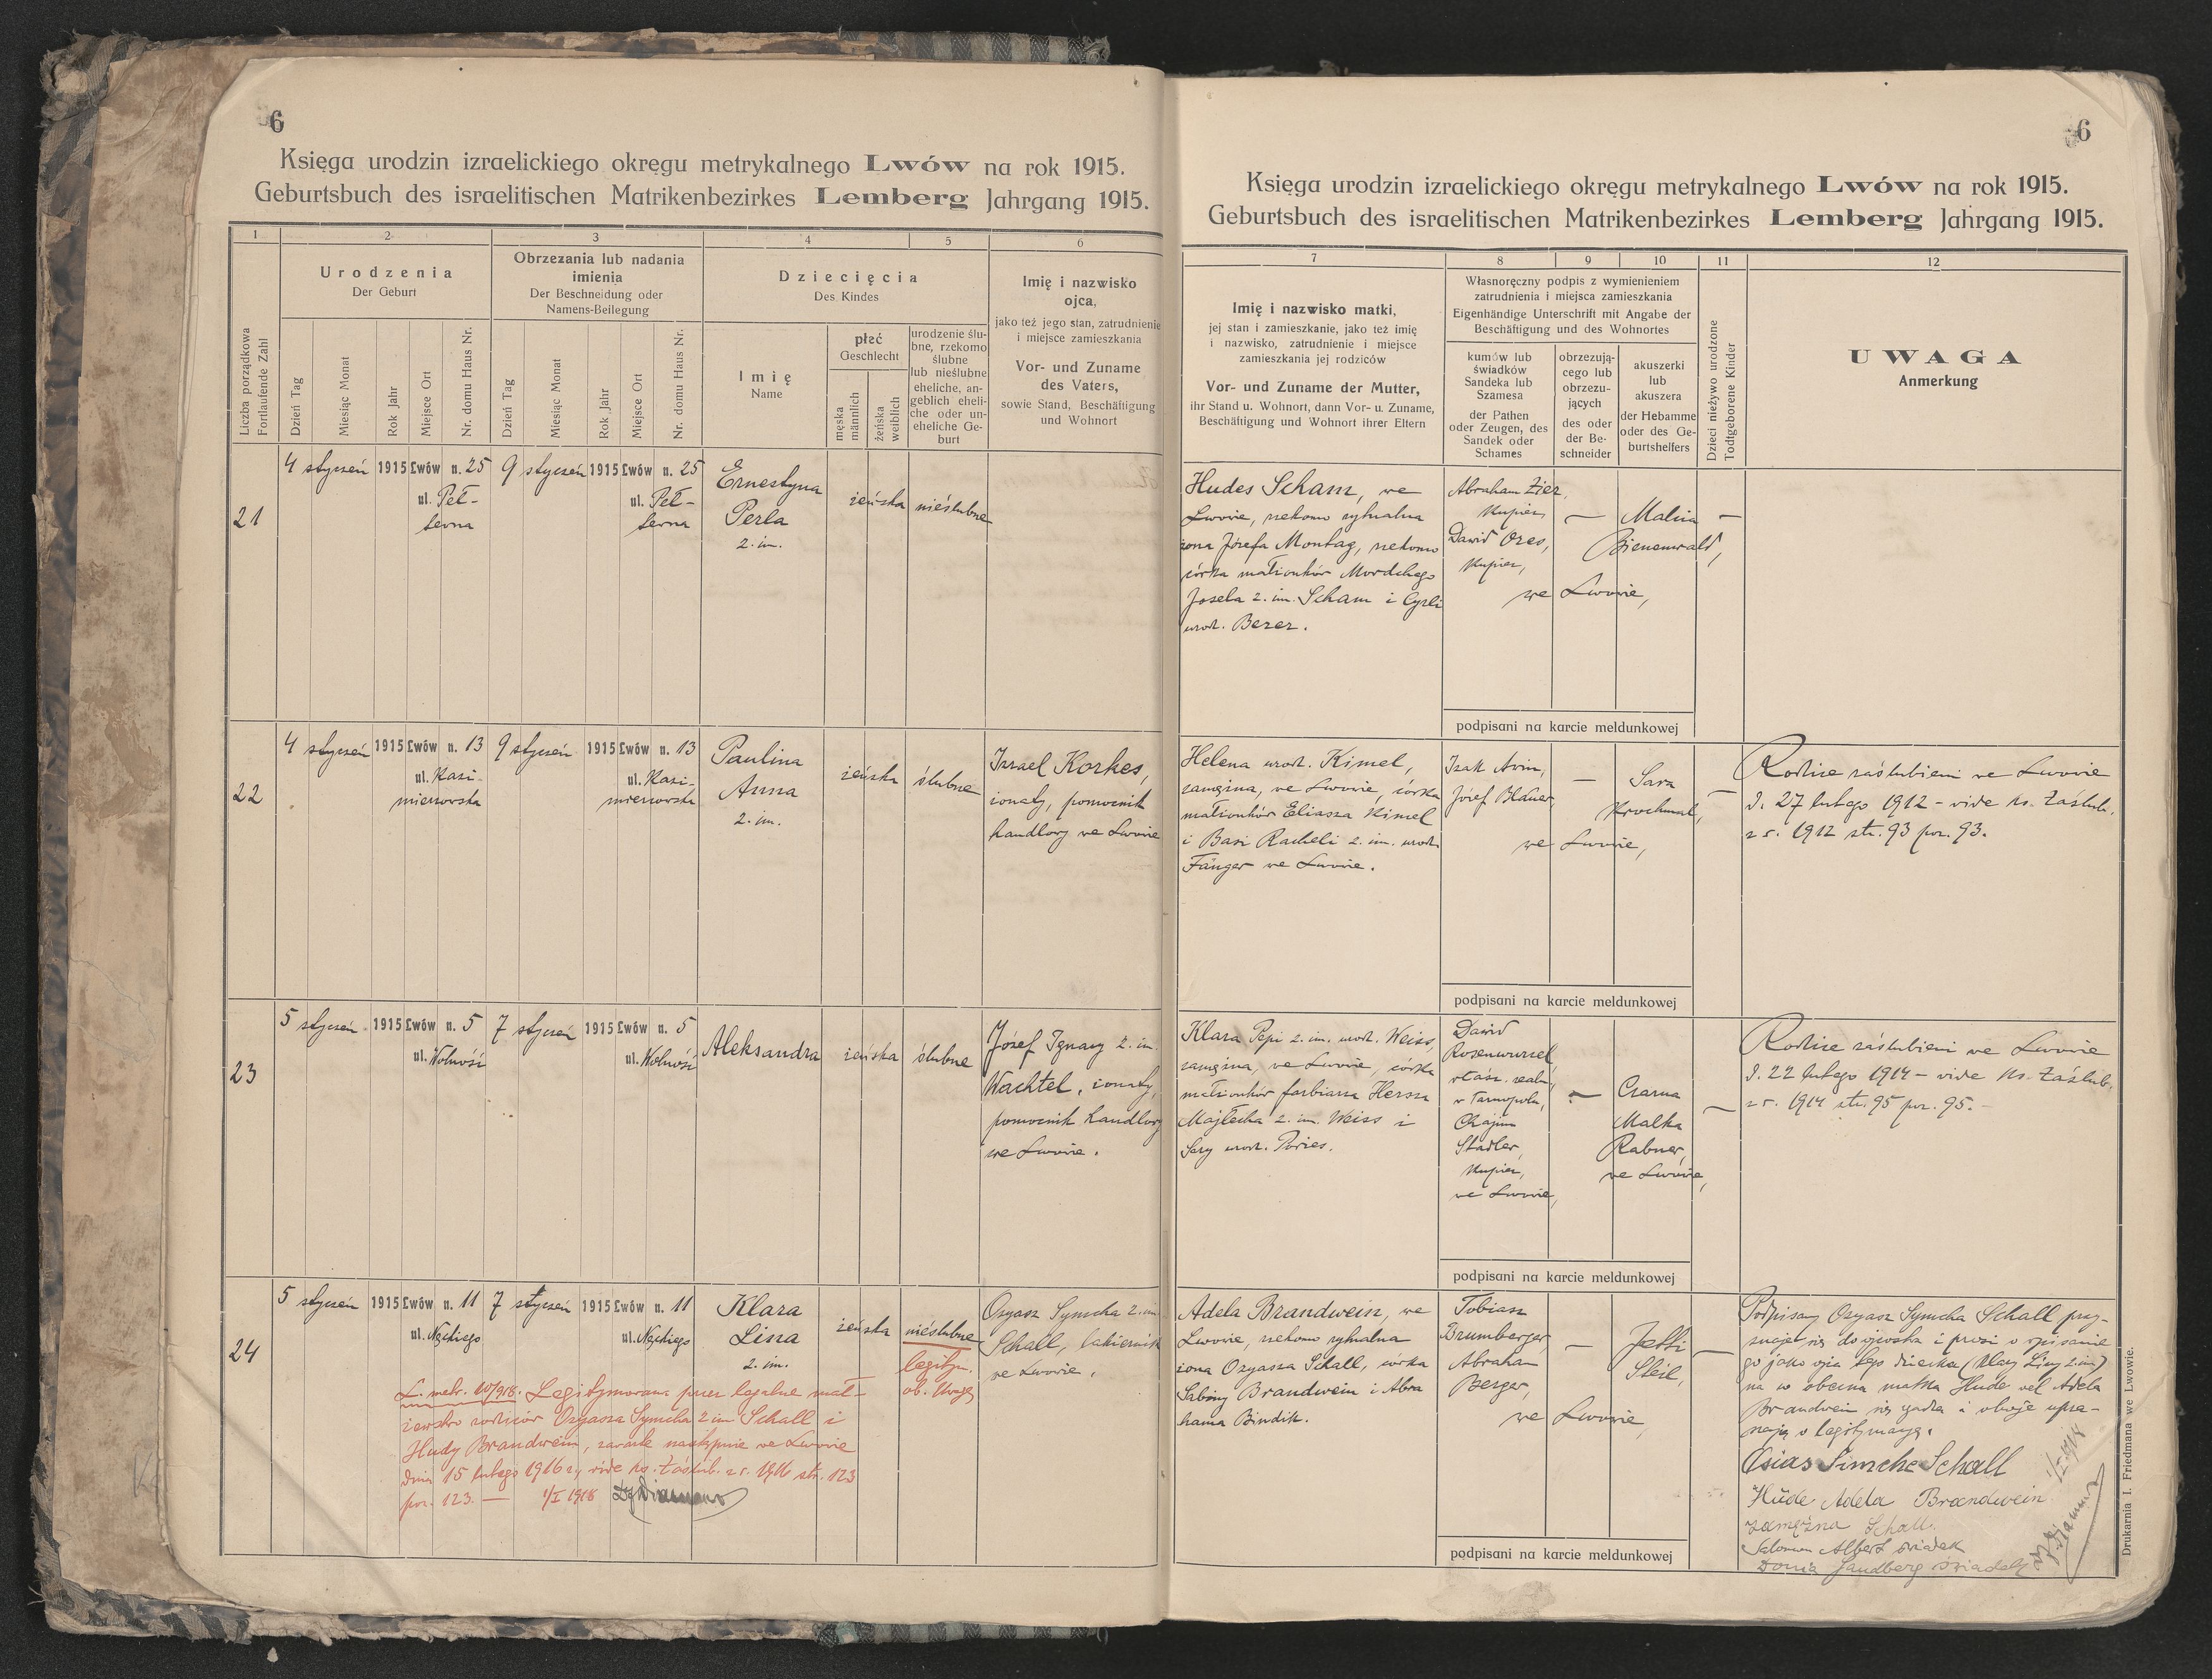 6
Księga urodzin izraelickiego okręgu metrykalnego Lwów na rok 1915.
Geburtsbuch des israelitischen Matrikenbezirkes Lemberg Jahrgang 1915.
1
2
3
4
5
6
Liczba porządkowa
Fortlaufende Zahl
Urodzenia
Der Geburt
Dzień Tag
Miesiąc Monat
Rok Jahr
Miejsce Ort
Nr. domu Haus Nr.
Obrzezania lub nadania
imienia
Der Beschneidung oder
Namens-Beilegung
Dzień Tag
Miesiąc Monat
Rok Jahr
Miejsce Ort
Nr. domu Haus Nr.
Dziecięcia
Des Kindes
Imię
Name
płeć
Geschlecht
męska
männlich
żeńska
weiblich
urodzenie ślu-
bne, rzekomo
ślubne
lub nieślubne
eheliche, an-
geblich eheli-
che oder un-
eheliche Ge-
burt
Imię i nazwisko
ojca,
jako też jego stan, zatrudnienie
i miejsce zamieszkania
Vor- und Zuname
des Vaters,
sowie Stand, Beschäftigung
und Wohnort
21
4 styczeń 1915 Lwów n. 25
ul. Peł-
tewna
9 styczeń 1915 Lwów n. 25
ul. Peł-
tewna
Ernestyna
Perla
2. im.
żeńska
nieślubne
22
4 styczeń 1915 Lwów n. 13
ul. Kazi-
mierzowska
9 styczeń 1915 Lwów n. 13
ul. Kazi-
mierzowska
Paulina
Anna
2. im.
żeńska
ślubne
Izrael Korkes,
żonaty, pomocnik
handlowy we Lwowie
23
5 styczeń 1915 Lwów n. 5
ul. Wolność
7 styczeń 1915 Lwów n. 5
ul. Wolność
Aleksandra
żeńska
ślubne
Józef Ignacy 2. im.
Wachtel, żonaty,
pomocnik handlowy
we Lwowie.
24
5 styczeń 1915 Lwów n. 11
ul. Nęckiego
7 styczeń 1915 Lwów n. 11
ul. Nęckiego
Klara
Lina
2. im.
żeńska
nieślubne
legitym.
ob. Uwagę
Ozyasz Symcha 2. im.
Schall, lakiernik
we Lwowie.
L. metr. 10/918. Legitymowana przez legalne mał-
żeństwo rodziców Ozyasza Symcha 2 im Schall i
Hudy Brandwein, zawarte następnie we Lwowie
dnia 15 lutego 1916 r., vide ks. zaślub. z r. 1916 str. 123
poz. 123. — 1/I 1918
6
Księga urodzin izraelickiego okręgu metrykalnego Lwów na rok 1915.
Geburtsbuch des israelitischen Matrikenbezirkes Lemberg Jahrgang 1915.
7
8
9
10
11
12
Imię i nazwisko matki,
jej stan i zamieszkanie, jako też imię
i nazwisko, zatrudnienie i miejsce
zamieszkania jej rodziców
Vor- und Zuname der Mutter,
ihr Stand u. Wohnort, dann Vor- u. Zuname,
Beschäftigung und Wohnort ihrer Eltern
Własnoręczny podpis z wymienieniem
zatrudnienia i miejsca zamieszkania
Eigenhändige Unterschrift mit Angabe der
Beschäftigung und des Wohnortes
kumów lub
świadków
Sandeka lub
Szamesa
der Pathen
oder Zeugen, des
Sandek oder
Schames
obrzezują-
cego lub
obrzezu-
jących
des oder
der Be-
schneider
akuszerki
lub
akuszera
der Hebamme
oder des Ge-
burtshelfers
Dzieci nieżywo urodzone
Todtgeborene Kinder
UWAGA
Anmerkung
Hudes Scham, we
Lwowie, rzekomo rytualna
żona Józefa Montag, rzekomo
córka małżonków Mordchego
Josela 2. im. Scham i Cyrli
urodz. Bezer.
Abraham Zier,
kupiec,
Dawid Ores,
kupiec,
—
Malcia
Bienenwald,
we Lwowie,
—
podpisani na karcie meldunkowej
Helena urodz. Kimel,
zamężna, we Lwowie, córka
małżonków Eliasza Kimel
i Basi Racheli 2. im. urodz.
Fänger we Lwowie.
Izak Avin,
Józef Blauer,
—
Sara
Krochmal,
we Lwowie,
—
Rodzice zaślubieni we Lwowie
d. 27 lutego 1912 – vide ks. zaślub.
z r. 1912 str. 93 poz. 93.
podpisani na karcie meldunkowej
Klara Pepi 2. im. urodz. Weiss,
zamężna, we Lwowie, córka
małżonków farbiarza Hersza
Majlecha 2. im. Weiss i
Sary urodz. Pories.
Dawid
Rosenwurzel
właśc. realn.
w Tarnopolu,
Chajim
Stadler,
kupiec,
we Lwowie,
—
Czarna
Malka
Rabner,
we Lwowie,
—
Rodzice zaślubieni we Lwowie
d. 22 lutego 1914 – vide ks. zaślub.
z r. 1914 str. 95 poz. 95. –
podpisani na karcie meldunkowej
Adela Brandwein, we
Lwowie, rzekomo rytualna
żona Ozyasza Schall, córka
Sabiny Brandwein i Abra
hama Bindik.
Tobiasz
Brumberger,
Abraham
Berger,
—
Jetti
Steil,
we Lwowie,
—
Podpisany Ozyasz Symcha Schall przy-
znaje się do ojcostwa i prosi o wpisanie
go jako ojca tego dziecka (Klary Liny 2 im)
na co obecna matka Hude vel Adela
Brandwein się zgadza i oboje upra-
szają o legitymacyę.
Osias Simche Schall
Hude Adela Brandwein
zamężna Schall.
Salomon Albert świadek
Sandberg świadek
1/I 1918
podpisani na karcie meldunkowej
Drukarnia I. Friedmana we Lwowie.